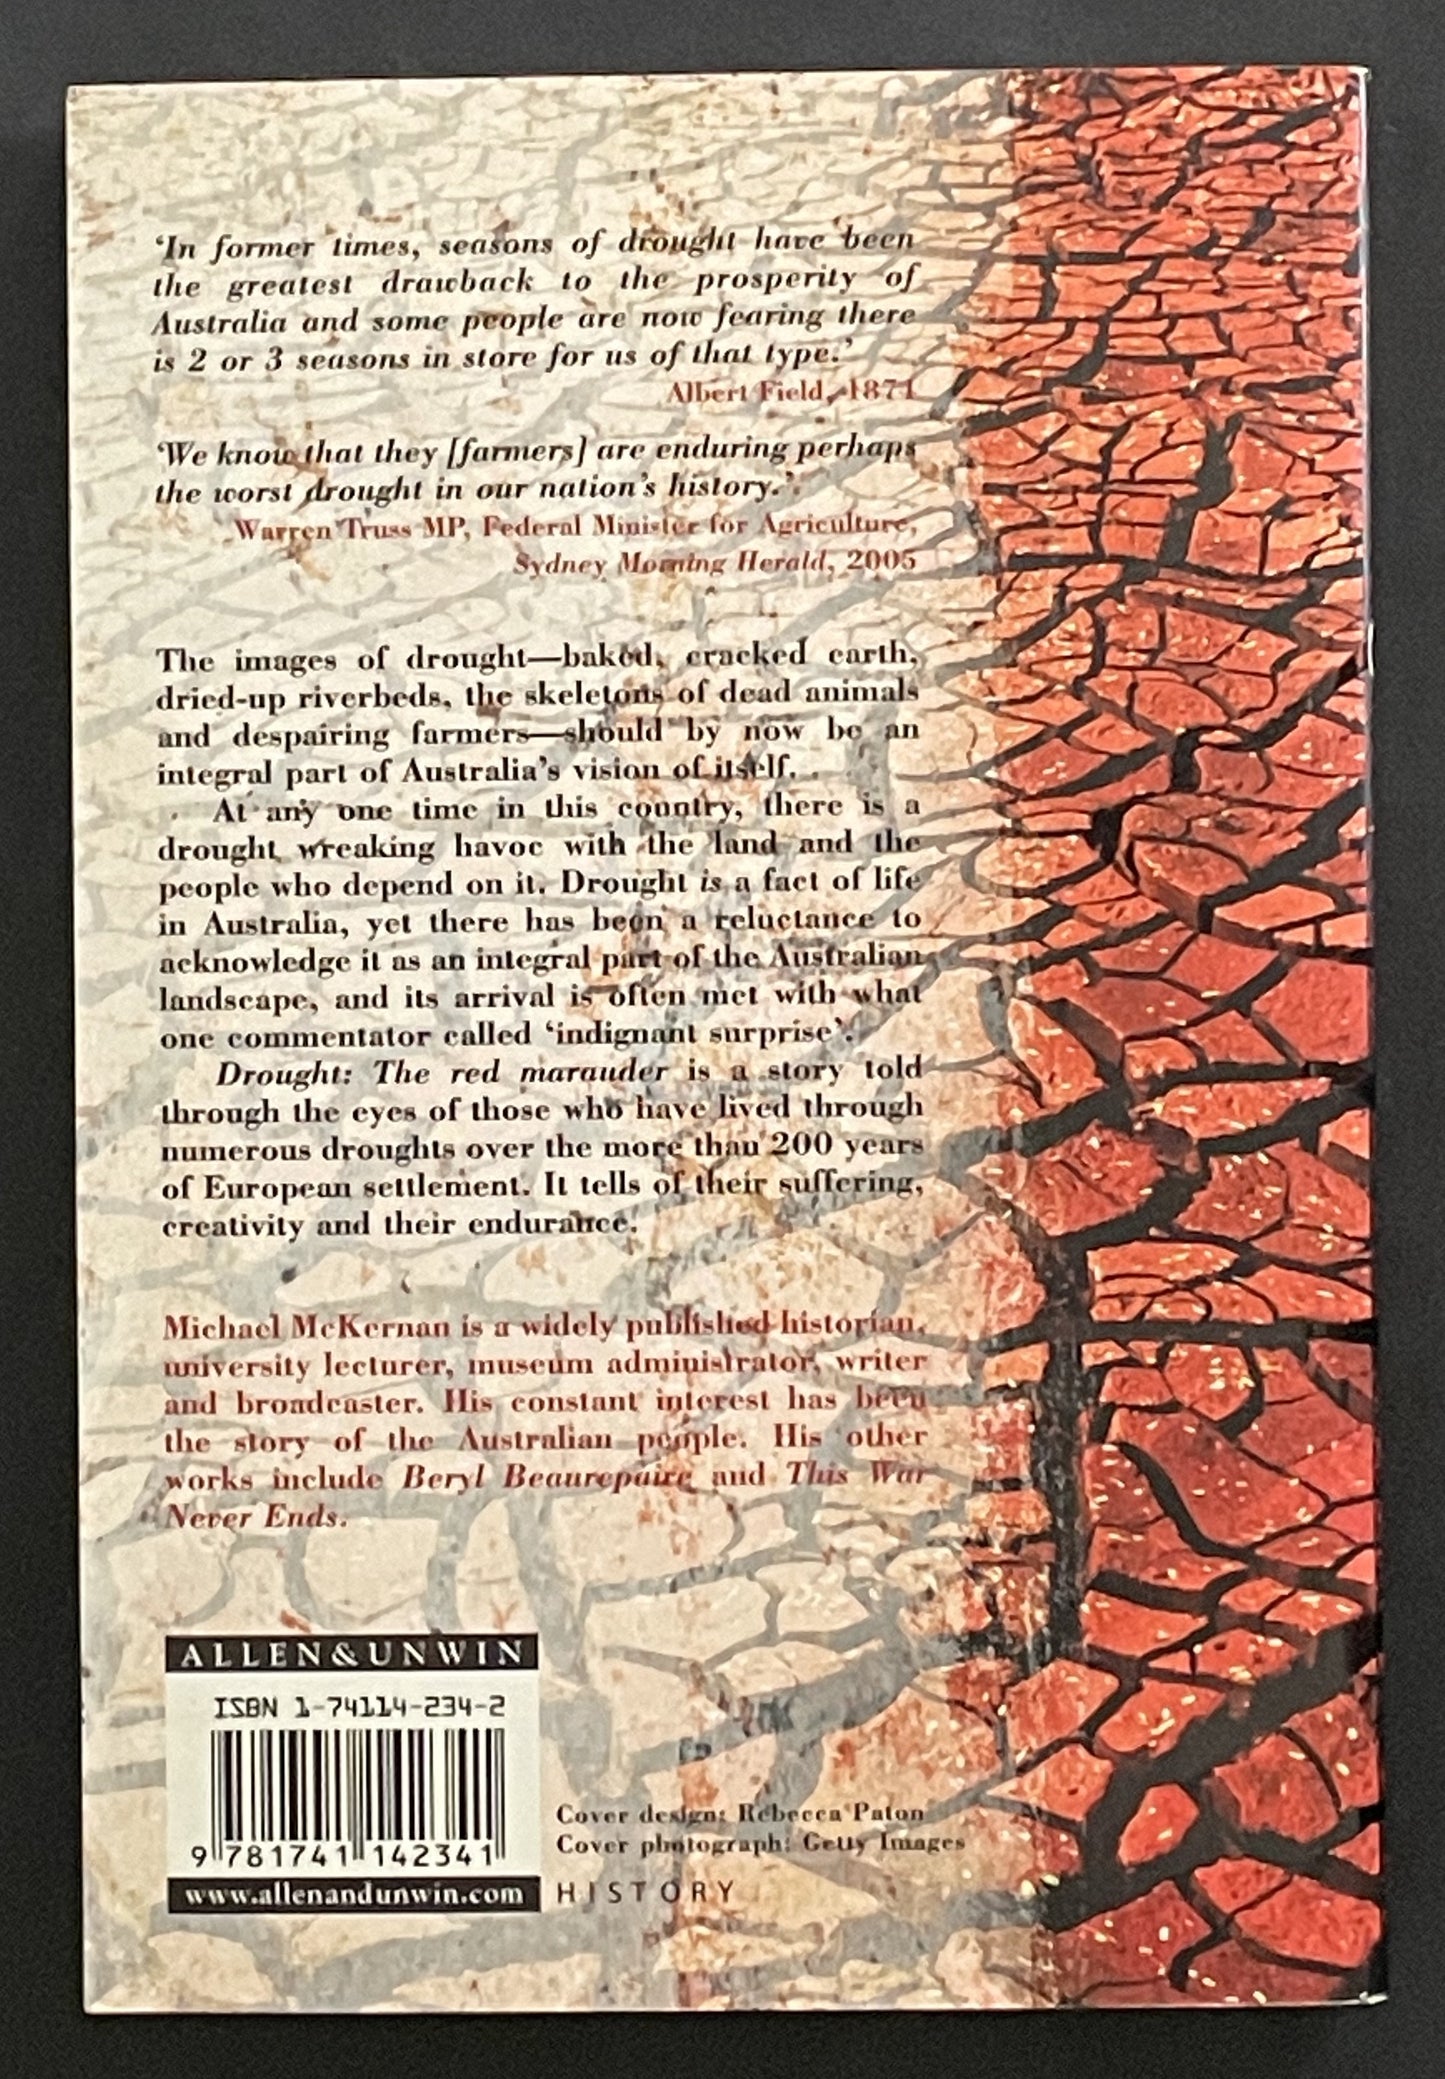 ‘In former times, seasons of drought have been
the greatest drawback to the prosperity of
Australia and some people are now fearing there
is 2 or 3 seasons in store for us of that type.’
Albert Field, 1871
‘We know that they [farmers] are enduring perhaps
the worst drought in our nation’s history.’
Warren Truss MP, Federal Minister for Agriculture,
Sydney Morning Herald, 2005
The images of drought—baked, cracked earth,
dried-up riverbeds, the skeletons of dead animals
and despairing farmers—should by now be an
integral part of Australia’s vision of itself.
At any one time in this country, there is a
drought wreaking havoc with the land and the
people who depend on it. Drought is a fact of life
in Australia, yet there has been a reluctance to
acknowledge it as an integral part of the Australian
landscape, and its arrival is often met with what
one commentator called ‘indignant surprise’.
Drought: The red marauder is a story told
through the eyes of those who have lived through
numerous droughts over the more than 200 years
of European settlement. It tells of their suffering,
creativity and their endurance.
Michael McKernan is a widely published historian,
university lecturer, museum administrator, writer
and broadcaster. His constant interest has been
the story of the Australian people. His other
works include Beryl Beaurepaire and This War
Never Ends.
ALLEN&UNWIN
ISBN 1-74114-234-2
9 781741 142341
www.allenandunwin.com
Cover design: Rebecca Paton
Cover photograph: Getty Images
HISTORY